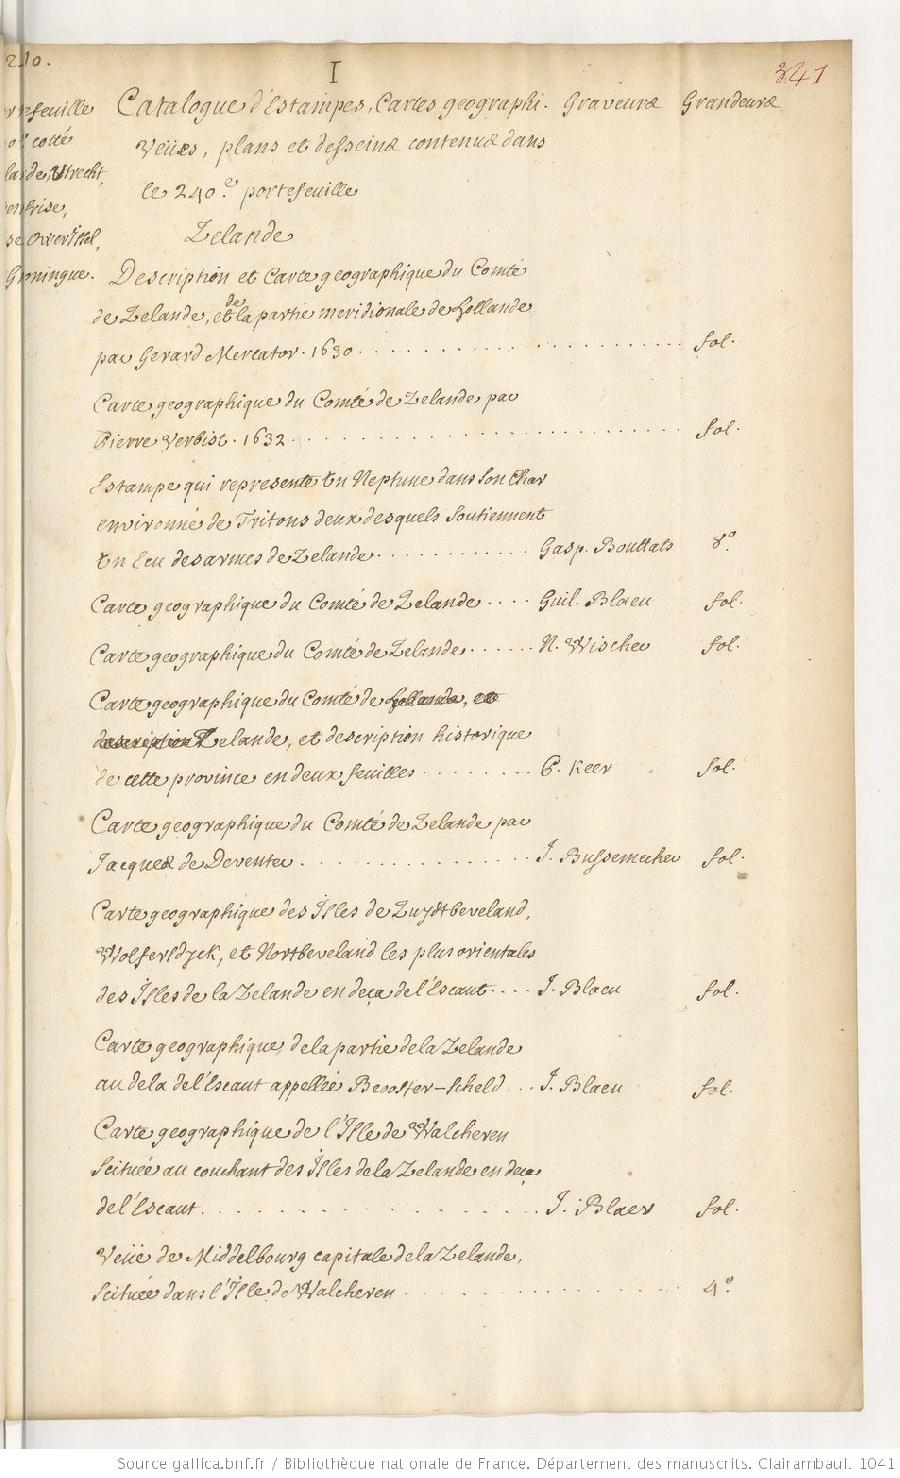 240.
I
341
Catalogue d'Estampes, Cartes geographi. Graveurs Grandeurs
Veües, plans et desseins contenus dans
le 240.e portefeuille
Zelande
portefeuille
cotté
Utrecht,
Frise,
Overissel,
Groningue.
Description et Carte geographique du Comté
de Zelande, et de la partie meridionale de hollande
par Gerard Mercator. 1630. fol.
Carte geographique du Comté de Zelande par
Pierre Verbist. 1632. fol.
Estampe qui represente Un Neptune dans son Char
environné de Tritons deux desquels Soutiennent
Un Ecu des armes de Zelande. Gasp. Bouttats 8.o
Carte geographique du Comté de Zelande.... Guil. Blaeu fol.
Carte geographique du Comté de Zelande...... N. Wischer fol.
Carte geographique du Comté de hollande, et
description Zelande, et description historique
de cette province en deux feuilles........ P. Keer fol.
Carte geographique du Comté de Zelande par
Jacques de Deventer. J. Bussemecher fol.
Carte geographique des Isles de Zuydtbeveland,
Wolferldyck, et Nortbeveland les plus orientales
des Isles de la Zelande en deça de l'Escaut.... J. Blaeu fol.
Carte geographique de la partie de la Zelande
au dela de l'Escaut appellée Beooster-scheld... J. Blaeu fol.
Carte geographique de l'Isle de Walcheren
Scituée au couchant des Isles de la Zelande en deça
de l'Escaut. J. Blaev fol.
Veüe de Middelbourg capitale de la Zelande,
Scituée dans l'Isle de Walcheren 4.o
Source gallica.bnf.fr / Bibliothèque nationale de France. Département des manuscrits. Clairambaul. 1041